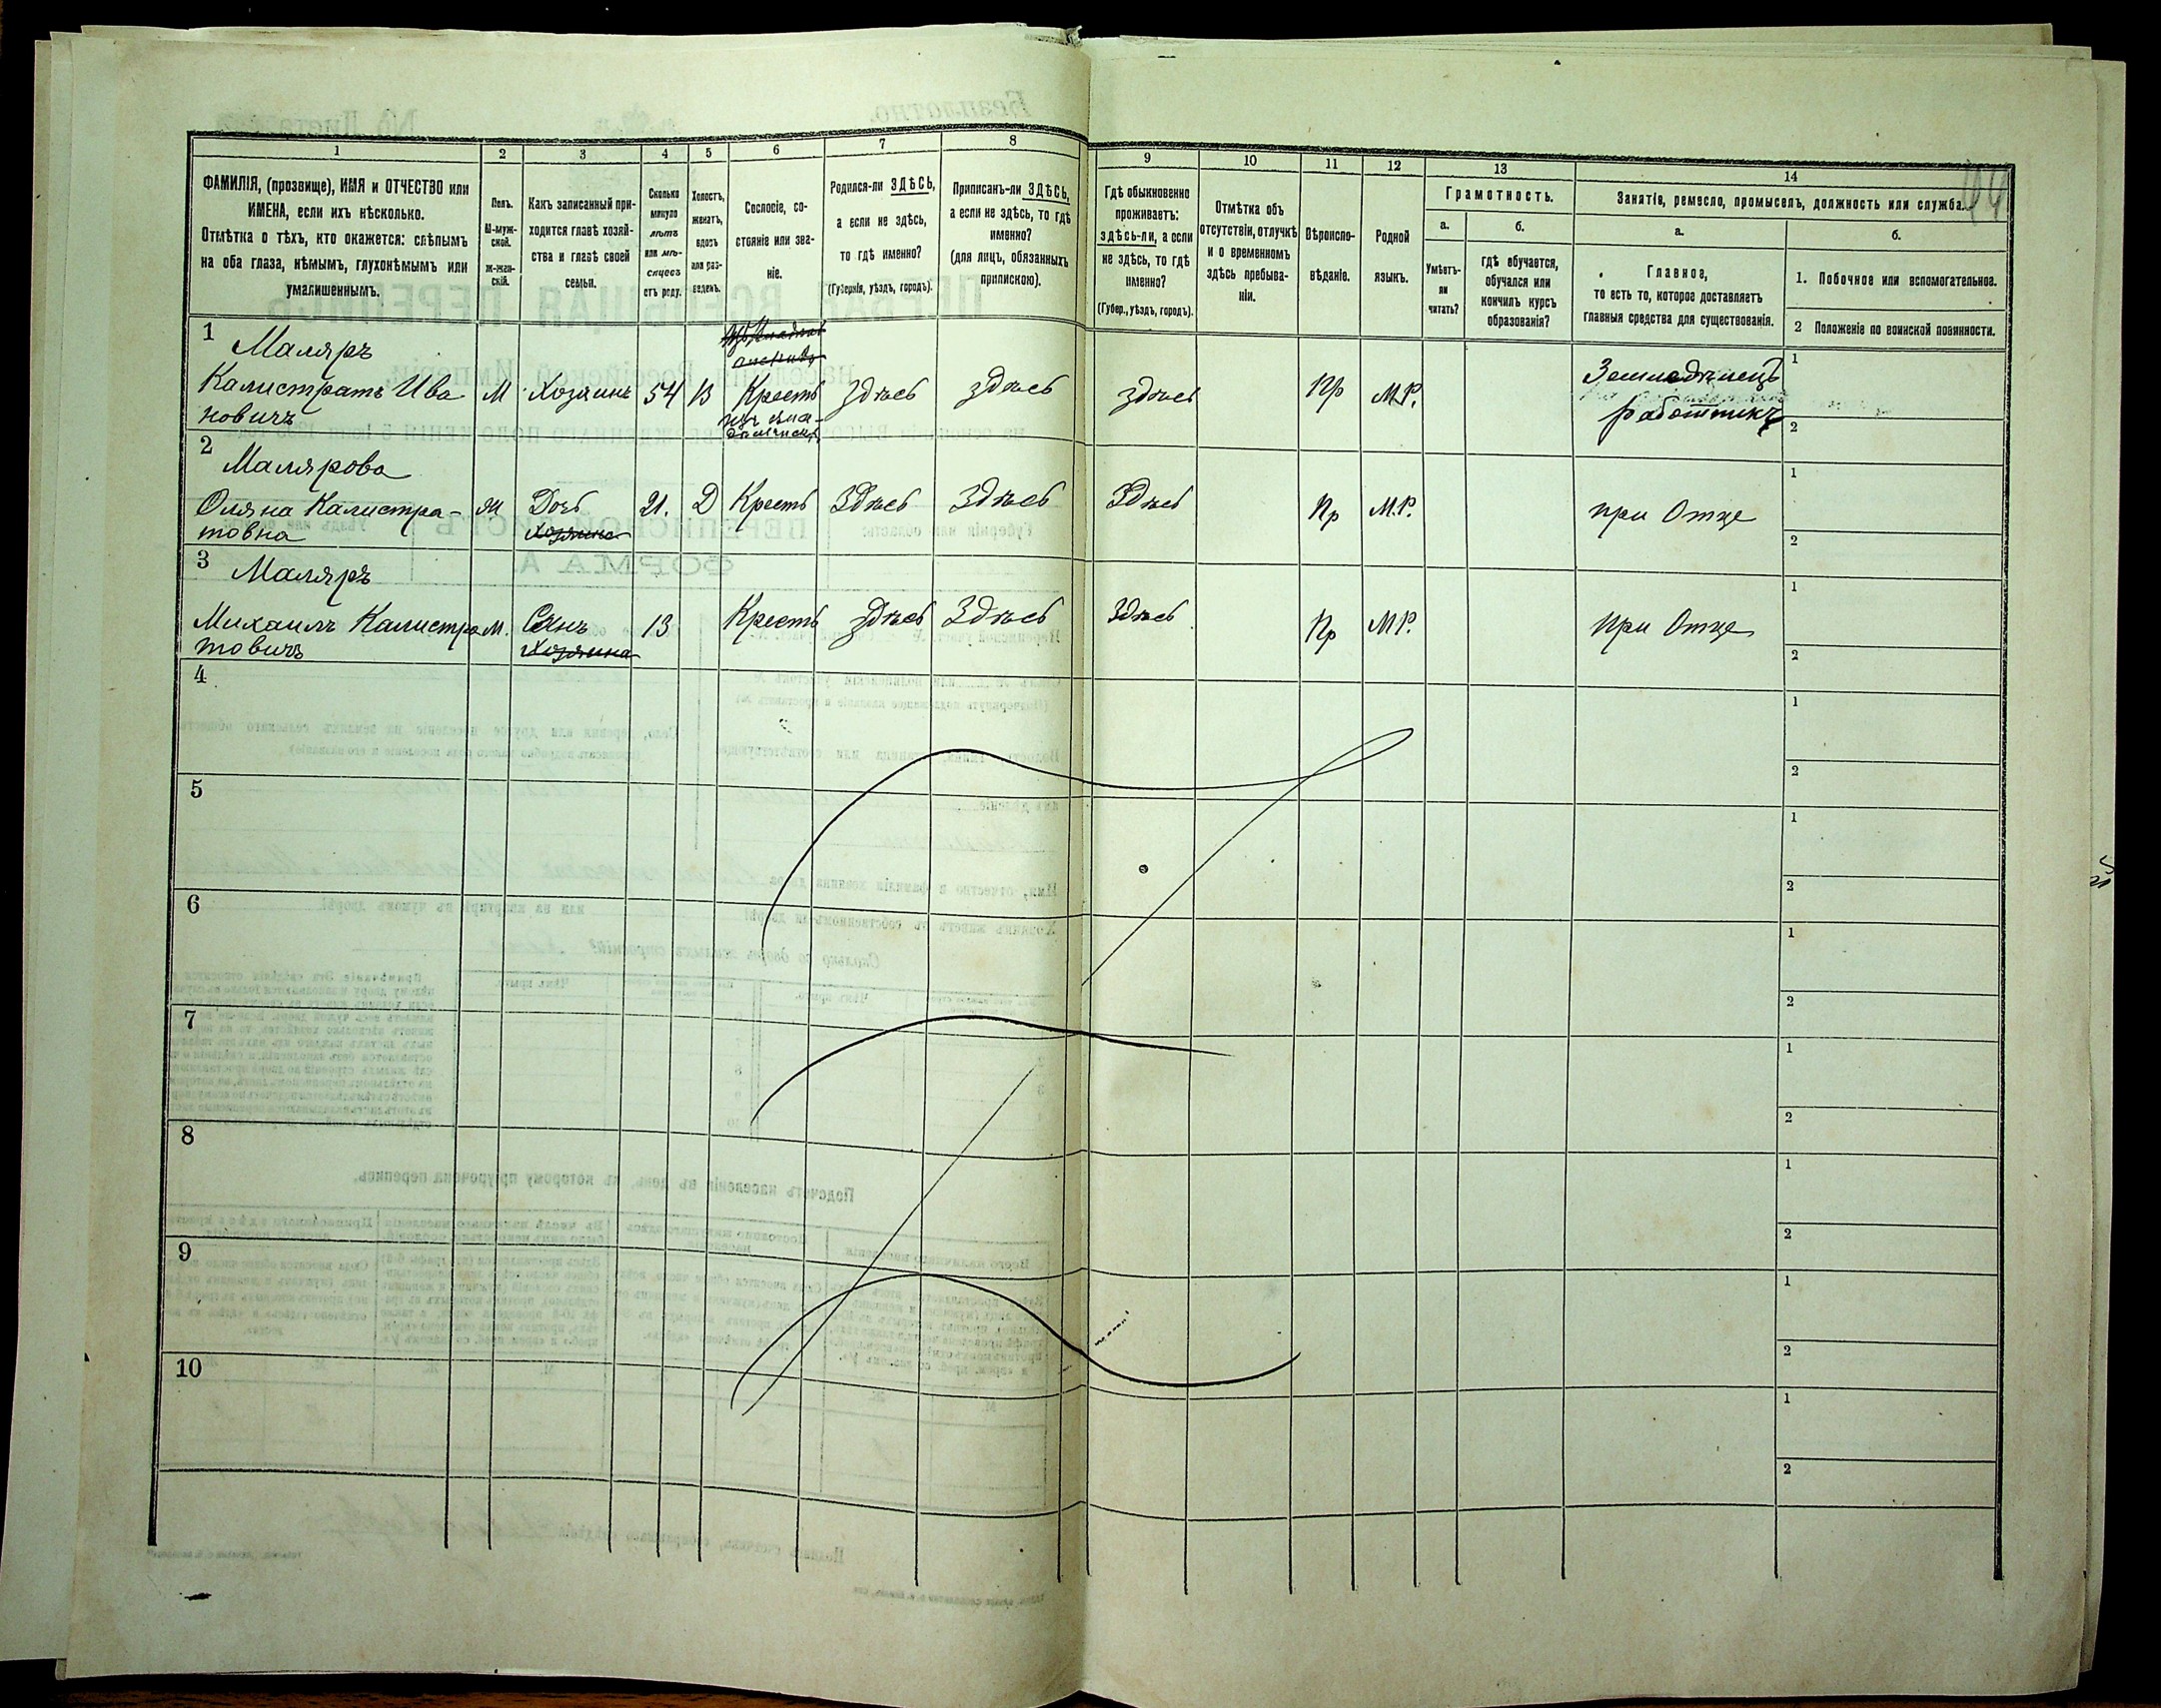 1
2
3
4
5
6
7
8
9
10
11
12
13
14
ФАМИЛІЯ, (прозвище), ИМЯ и ОТЧЕСТВО или
ИМЕНА, если ихъ нѣсколько.
Отмѣтка о тѣхъ, кто окажется: слѣпымъ
на оба глаза, нѣмымъ, глухонѣмымъ или
умалишеннымъ.
Полъ.
М-муж-
ской.
Ж-жен-
скій.
Какъ записанный при-
ходится главѣ хозяй-
ства и главѣ своей
семьи.
Сколько
минуло
лѣтъ
или мѣ-
сяцевъ
отъ роду.
Холостъ,
женатъ,
вдовъ
или раз-
веденъ.
Сословіе, со-
стояніе или зва-
ніе.
Родился-ли ЗДѢСЬ,
а если не здѣсь,
то гдѣ именно?
(Губернія, уѣздъ, городъ).
Приписанъ-ли ЗДѢСЬ,
а если не здѣсь, то гдѣ
именно?
(для лицъ, обязанныхъ
припискою).
Гдѣ обыкновенно
проживаетъ:
здѣсь-ли, а если
не здѣсь, то гдѣ
именно?
(Губер., уѣздъ, городъ).
Отмѣтка объ
отсутствіи, отлучкѣ
и о временномъ
здѣсь пребыва-
ніи.
Вѣроиспо-
вѣданіе.
Родной
языкъ.
Грамотность.
а.
Умѣетъ-
ли
читать?
б.
гдѣ обучается,
обучался или
кончилъ курсъ
образованія?
Занятіе, ремесло, промыселъ, должность или служба.
а.
Главное,
то есть то, которое доставляетъ
главныя средства для существованія.
б.
1. Побочное или вспомогательное.
2 Положеніе по воинской повинности.
1 Маляръ
Калистратъ Ива М Хозяинъ 54 В Крестъ Здѣсь здѣсь здѣсь Пр М.Р. Земледѣлецъ
новичъ работникъ
1
2
2 Малярова
Оляна Калистра- М Дочь 21. Д Крестъ Здѣсь Здѣсь Здѣсь Пр М.Р. при Отце
товна Хозяина
1
2
3 Маляръ
Михаилъ Калистра М. Сынъ 13 Крестъ здѣсь Здѣсь Здѣсь Пр М Р. при Отце
товичъ Хозяина
1
2
4
1
2
5
1
2
6
1
2
7
1
2
8
1
2
9
1
2
10
1
2